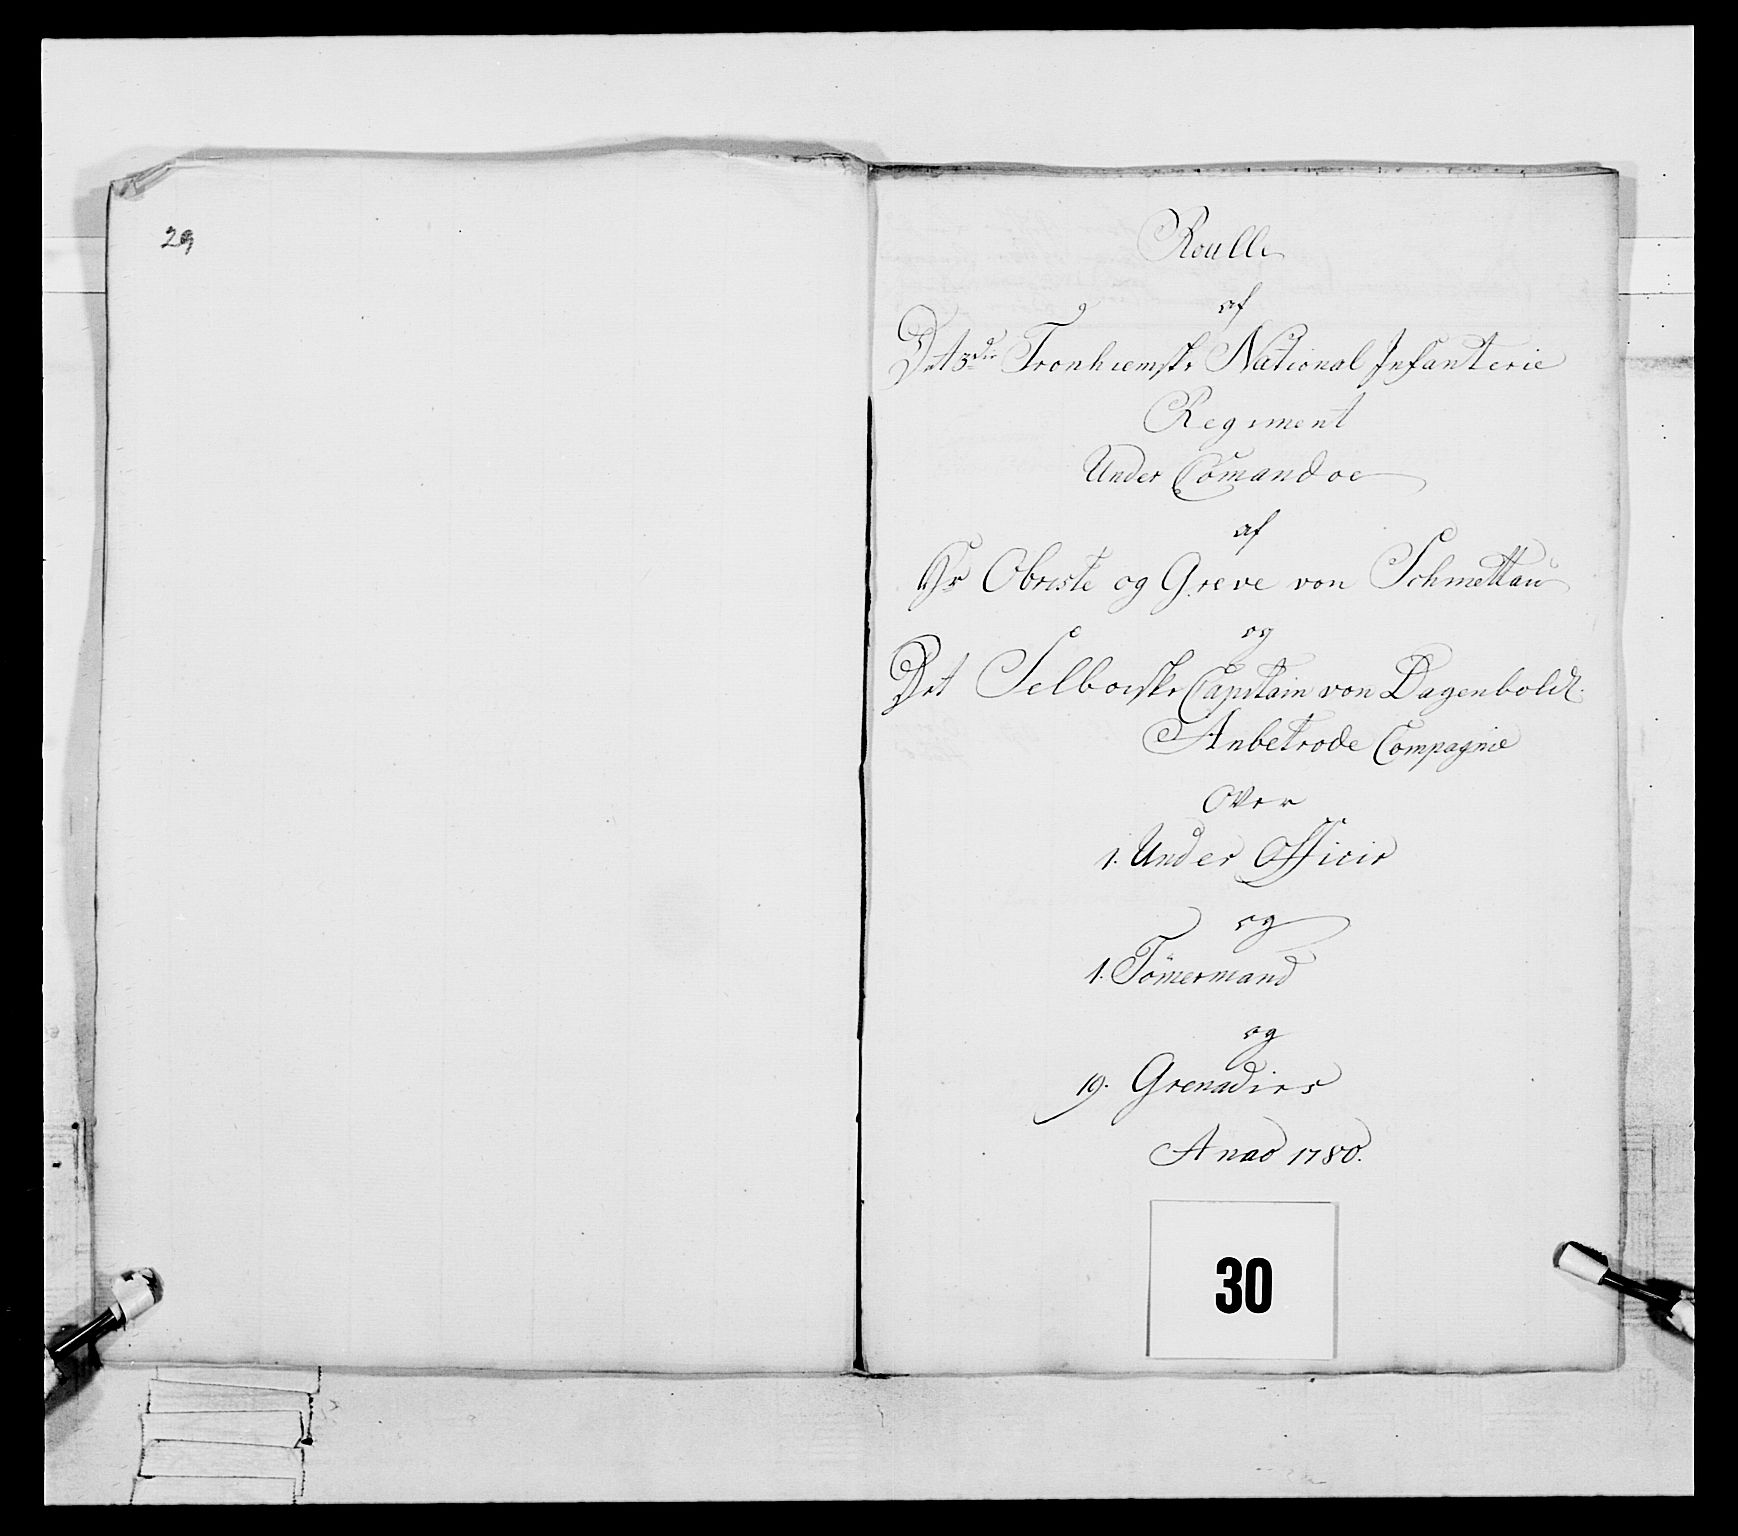 29
Roulle
af
Det 3die Tronhiemske National Infanterie
Regiment
Under Comandoe
af
Hr Obriste og Greve von Schmettau
og
Det Selboeske Capitain von Dagenboldt
Anbetrode Compagnie
Over
1. Under Officir
og
1. Tömermand
og
19. Grenadirs
Anno 1780.
30